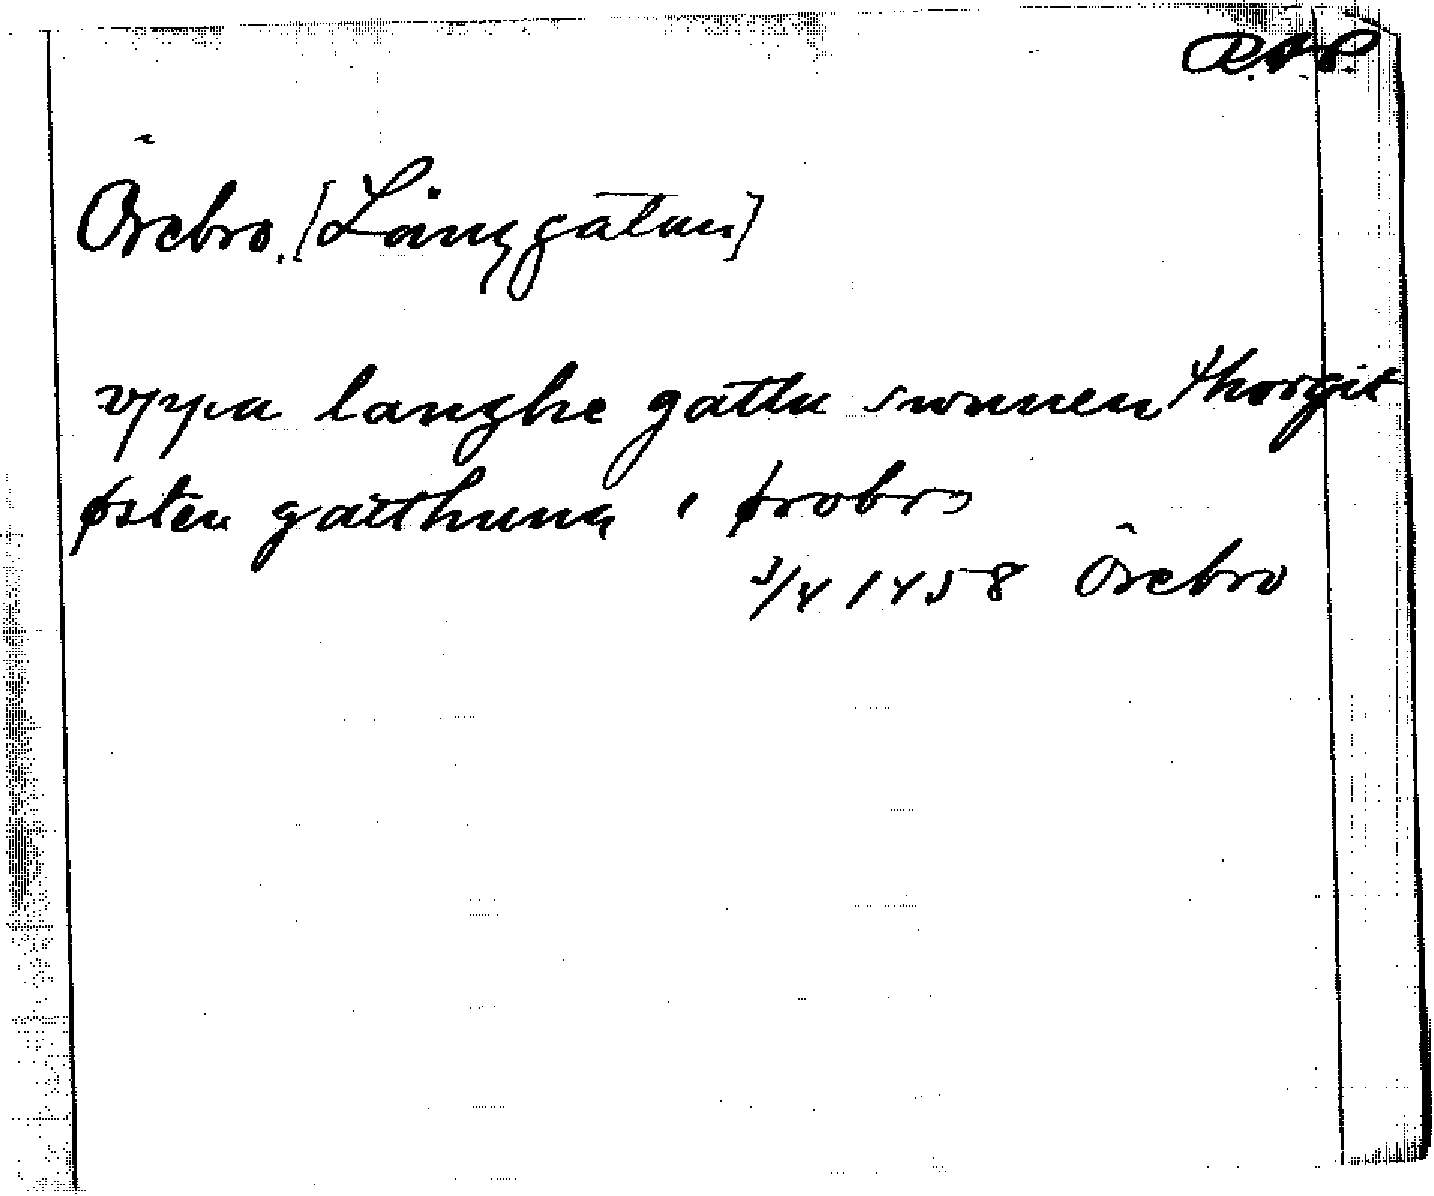 RAP
Örebro. [Långgatan]
vppa langhe gathu sunnen thorgit
østen gatthuna i ørobro
3/4 1458 Örebro